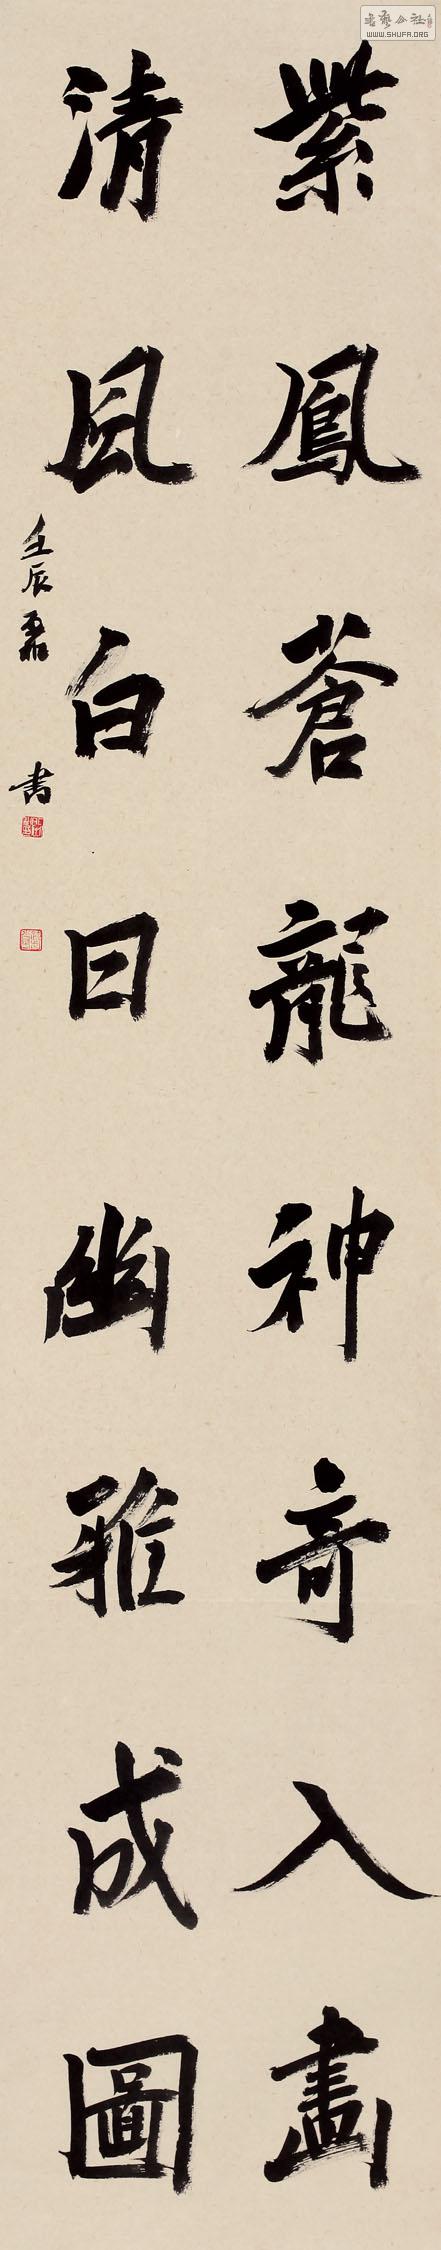 紫鳳蒼龍神奇入畫
清風白日幽雅成圖
壬辰
書
書藝公社
WWW.SHUFA.ORG